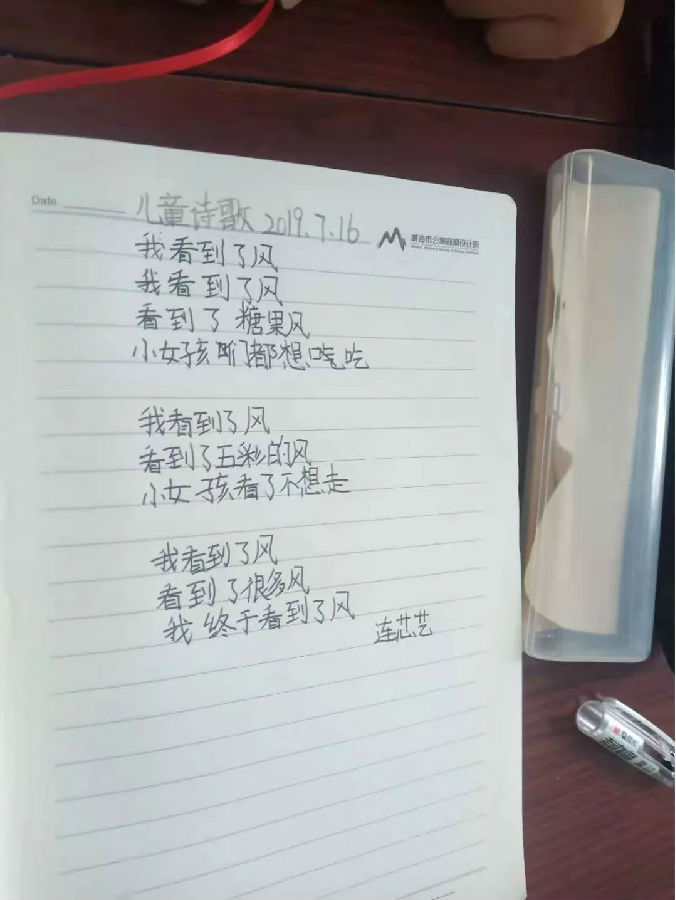 Date
儿童诗歌 2019.7.16
我看到了风
我看到了风
看到了糖果风
小女孩们都想吃吃
我看到了风
看到了五彩的风
小女孩看了不想走
我看到了风
看到了很多风
我终于看到了风
连芯艺